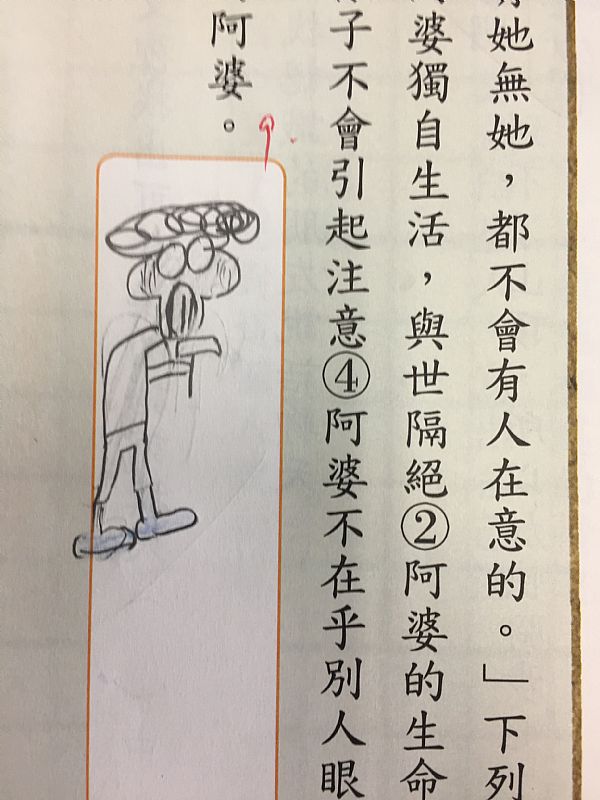 她無她，都不會有人在意的。」下列
婆獨自生活，與世隔絕②阿婆的生命
子不會引起注意④阿婆不在乎別人眼
阿婆。